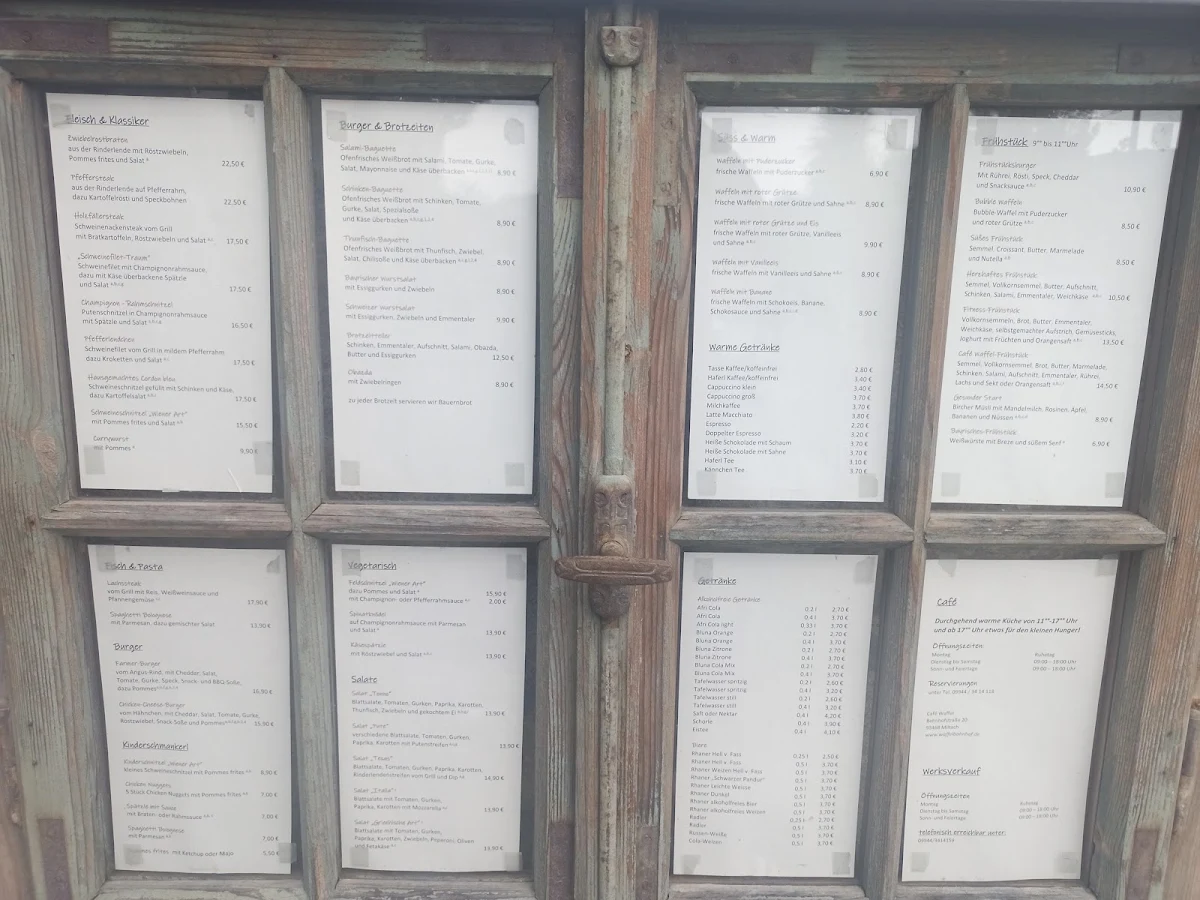 Fleisch & Klassiker
Zwiebelrostbraten
aus der Rinderlende mit Röstzwiebeln,
Pommes frites und Salat 22,50 €
Pfeffersteak
aus der Rinderlende auf Pfefferrahm,
dazu Kartoffelrösti und Speckbohnen 22,50 €
Holzfällersteak
Schweinenackensteak vom Grill
mit Bratkartoffeln, Röstzwiebeln und Salat 17,50 €
„Schweinefilet-Traum“
Schweinefilet mit Champignonrahmsauce,
dazu mit Käse überbackene Spätzle
und Salat 17,50 €
Champignon - Rahmschnitzel
Putenschnitzel in Champignonrahmsauce
mit Spätzle und Salat 16,50 €
Pfefferlendchen
Schweinefilet vom Grill in mildem Pfefferrahm,
dazu Kroketten und Salat 17,50 €
Hausgemachtes Cordon bleu
Schweineschnitzel gefüllt mit Schinken und Käse,
dazu Kartoffelsalat 17,50 €
Schweineschnitzel „Wiener Art“
mit Pommes frites und Salat 15,50 €
Currywurst
mit Pommes 9,90 €
Burger & Brotzeiten
Salami-Baguette
Ofenfrisches Weißbrot mit Salami, Tomate, Gurke,
Salat, Mayonnaise und Käse überbacken 8,90 €
Schinken-Baguette
Ofenfrisches Weißbrot mit Schinken, Tomate,
Gurke, Salat, Spezialsoße
und Käse überbacken 8,90 €
Thunfisch-Baguette
Ofenfrisches Weißbrot mit Thunfisch, Zwiebel,
Salat, Chilisoße und Käse überbacken 8,90 €
Bayrischer Wurstsalat
mit Essiggurken und Zwiebeln 8,90 €
Schweizer Wurstsalat
mit Essiggurken, Zwiebeln und Emmentaler 9,90 €
Brotzeitteller
Schinken, Emmentaler, Aufschnitt, Salami, Obazda,
Butter und Essiggurken 12,50 €
Obazda
mit Zwiebelringen 8,90 €
zu jeder Brotzeit servieren wir Bauernbrot
Süss & Warm
Waffeln mit Puderzucker
frische Waffeln mit Puderzucker 6,90 €
Waffeln mit roter Grütze
frische Waffeln mit roter Grütze und Sahne 8,90 €
Waffeln mit roter Grütze und Eis
frische Waffeln mit roter Grütze, Vanilleeis
und Sahne 9,90 €
Waffeln mit Vanilleeis
frische Waffeln mit Vanilleeis und Sahne 8,90 €
Waffeln mit Banane
frische Waffeln mit Schokoeis, Banane,
Schokosauce und Sahne 8,90 €
Warme Getränke
Tasse Kaffee/koffeinfrei 2,80 €
Haferl Kaffee/koffeinfrei 3,40 €
Cappuccino klein 3,40 €
Cappuccino groß 3,70 €
Milchkaffee 3,70 €
Latte Macchiato 3,80 €
Espresso 2,20 €
Doppelter Espresso 3,20 €
Heiße Schokolade mit Schaum 3,70 €
Heiße Schokolade mit Sahne 3,70 €
Haferl Tee 3,10 €
Kännchen Tee 3,70 €
Frühstück 9⁰⁰ bis 11⁰⁰Uhr
Frühstücksburger
Mit Rührei, Rösti, Speck, Cheddar
und Snacksauce 10,90 €
Bubble Waffeln
Bubble-Waffel mit Puderzucker
und roter Grütze 8,50 €
Süßes Frühstück
Semmel, Croissant, Butter, Marmelade
und Nutella 8,50 €
Herzhaftes Frühstück
Semmel, Vollkornsemmel, Butter, Aufschnitt,
Schinken, Salami, Emmentaler, Weichkäse 10,50 €
Fitness-Frühstück
Vollkornsemmeln, Brot, Butter, Emmentaler,
Weichkäse, selbstgemachter Aufstrich, Gemüsesticks,
Joghurt mit Früchten und Orangensaft 13,50 €
Café Waffel-Frühstück
Semmel, Vollkornsemmel, Brot, Butter, Marmelade,
Schinken, Salami, Aufschnitt, Emmentaler, Rührei,
Lachs und Sekt oder Orangensaft 14,50 €
Gesunder Start
Bircher Müsli mit Mandelmilch, Rosinen, Apfel,
Bananen und Nüssen 8,90 €
Bayrisches-Frühstück
Weißwürste mit Breze und süßem Senf 6,90 €
Fisch & Pasta
Lachssteak
vom Grill mit Reis, Weißweinsauce und
Pfannengemüse 17,90 €
Spaghetti Bolognese
mit Parmesan, dazu gemischter Salat 13,90 €
Burger
Farmer-Burger
vom Angus-Rind, mit Cheddar, Salat,
Tomate, Gurke, Speck, Snack- und BBQ-Soße,
dazu Pommes 15,90 €
Chicken-Cheese-Burger
vom Hähnchen, mit Cheddar, Salat, Tomate, Gurke,
Röstzwiebel, Snack Soße und Pommes 15,90 €
Kinderschmankerl
Kinderschnitzel „Wiener Art“
kleines Schweineschnitzel mit Pommes frites 8,90 €
Chicken Nuggets
5 Stück Chicken Nuggets mit Pommes frites 7,00 €
Spätzle mit Sauce
mit Braten- oder Rahmsauce 7,00 €
Spaghetti Bolognese
mit Parmesan 7,00 €
Pommes frites, mit Ketchup oder Mayo 5,50 €
Vegetarisch
Feldschnitzel „Wiener Art“
dazu Pommes und Salat 15,90 €
mit Champignon- oder Pfefferrahmsauce 2,00 €
auf Champignonrahmsauce mit Parmesan
und Salat 13,90 €
Käsespätzle
mit Röstzwiebel und Salat 13,90 €
Salate
Blattsalate, Tomaten, Gurken, Paprika, Karotten,
Thunfisch, Zwiebeln und gekochtem Ei 13,90 €
verschiedene Blattsalate, Tomaten, Gurken,
Paprika, Karotten mit Putenstreifen 13,90 €
Salat „Texas“
Blattsalate, Tomaten, Gurken, Paprika, Karotten,
Rinderlendenstreifen vom Grill und Dip 14,90 €
Salat „Italia“
Blattsalate mit Tomaten, Gurken,
Paprika, Karotten mit Mozzarella 13,90 €
Salat „Griechische Art“
Blattsalate mit Tomaten, Gurken,
Paprika, Karotten, Zwiebeln, Peperoni, Oliven
und Fetakäse 13,90 €
Getränke
Alkoholfreie Getränke
Afri Cola 0,2 l 2,70 €
Afri Cola 0,4 l 3,70 €
Afri Cola light 0,33 l 3,70 €
Bluna Orange 0,2 l 2,70 €
Bluna Orange 0,4 l 3,70 €
Bluna Zitrone 0,2 l 2,70 €
Bluna Zitrone 0,4 l 3,70 €
Bluna Cola Mix 0,2 l 2,70 €
Bluna Cola Mix 0,4 l 3,70 €
Tafelwasser spritzig 0,2 l 2,60 €
Tafelwasser spritzig 0,4 l 3,20 €
Tafelwasser still 0,2 l 2,60 €
Tafelwasser still 0,4 l 3,20 €
Saft oder Nektar 0,4 l 4,20 €
Schorle 0,4 l 3,90 €
Eistee 0,4 l 4,10 €
Biere
Rhaner Hell v. Fass 0,25 l 2,50 €
Rhaner Hell v. Fass 0,5 l 3,70 €
Rhaner Weizen Hell v. Fass 0,5 l 3,70 €
Rhaner „Schwarzer Pandur“ 0,5 l 3,70 €
Rhaner Leichte Weisse 0,5 l 3,70 €
Rhaner Dunkel 0,5 l 3,70 €
Rhaner alkoholfreies Bier 0,5 l 3,70 €
Rhaner alkoholfreies Weizen 0,5 l 3,70 €
Radler 0,25 l
Radler 0,5 l 3,70 €
Russen-Weiße 0,5 l 3,70 €
Cola-Weizen 0,5 l 3,70 €
Café
Durchgehend warme Küche von 11⁰⁰-17⁰⁰ Uhr
und ab 17⁰⁰ Uhr etwas für den kleinen Hunger!
Öffnungszeiten
Montag Ruhetag
Dienstag bis Samstag 09:00 – 18:00 Uhr
Sonn- und Feiertage 09:00 – 18:00 Uhr
Reservierungen
Café Waffel
Werksverkauf
Öffnungszeiten
Montag Ruhetag
Dienstag bis Samstag
Sonn- und Feiertage
telefonisch erreichbar unter: